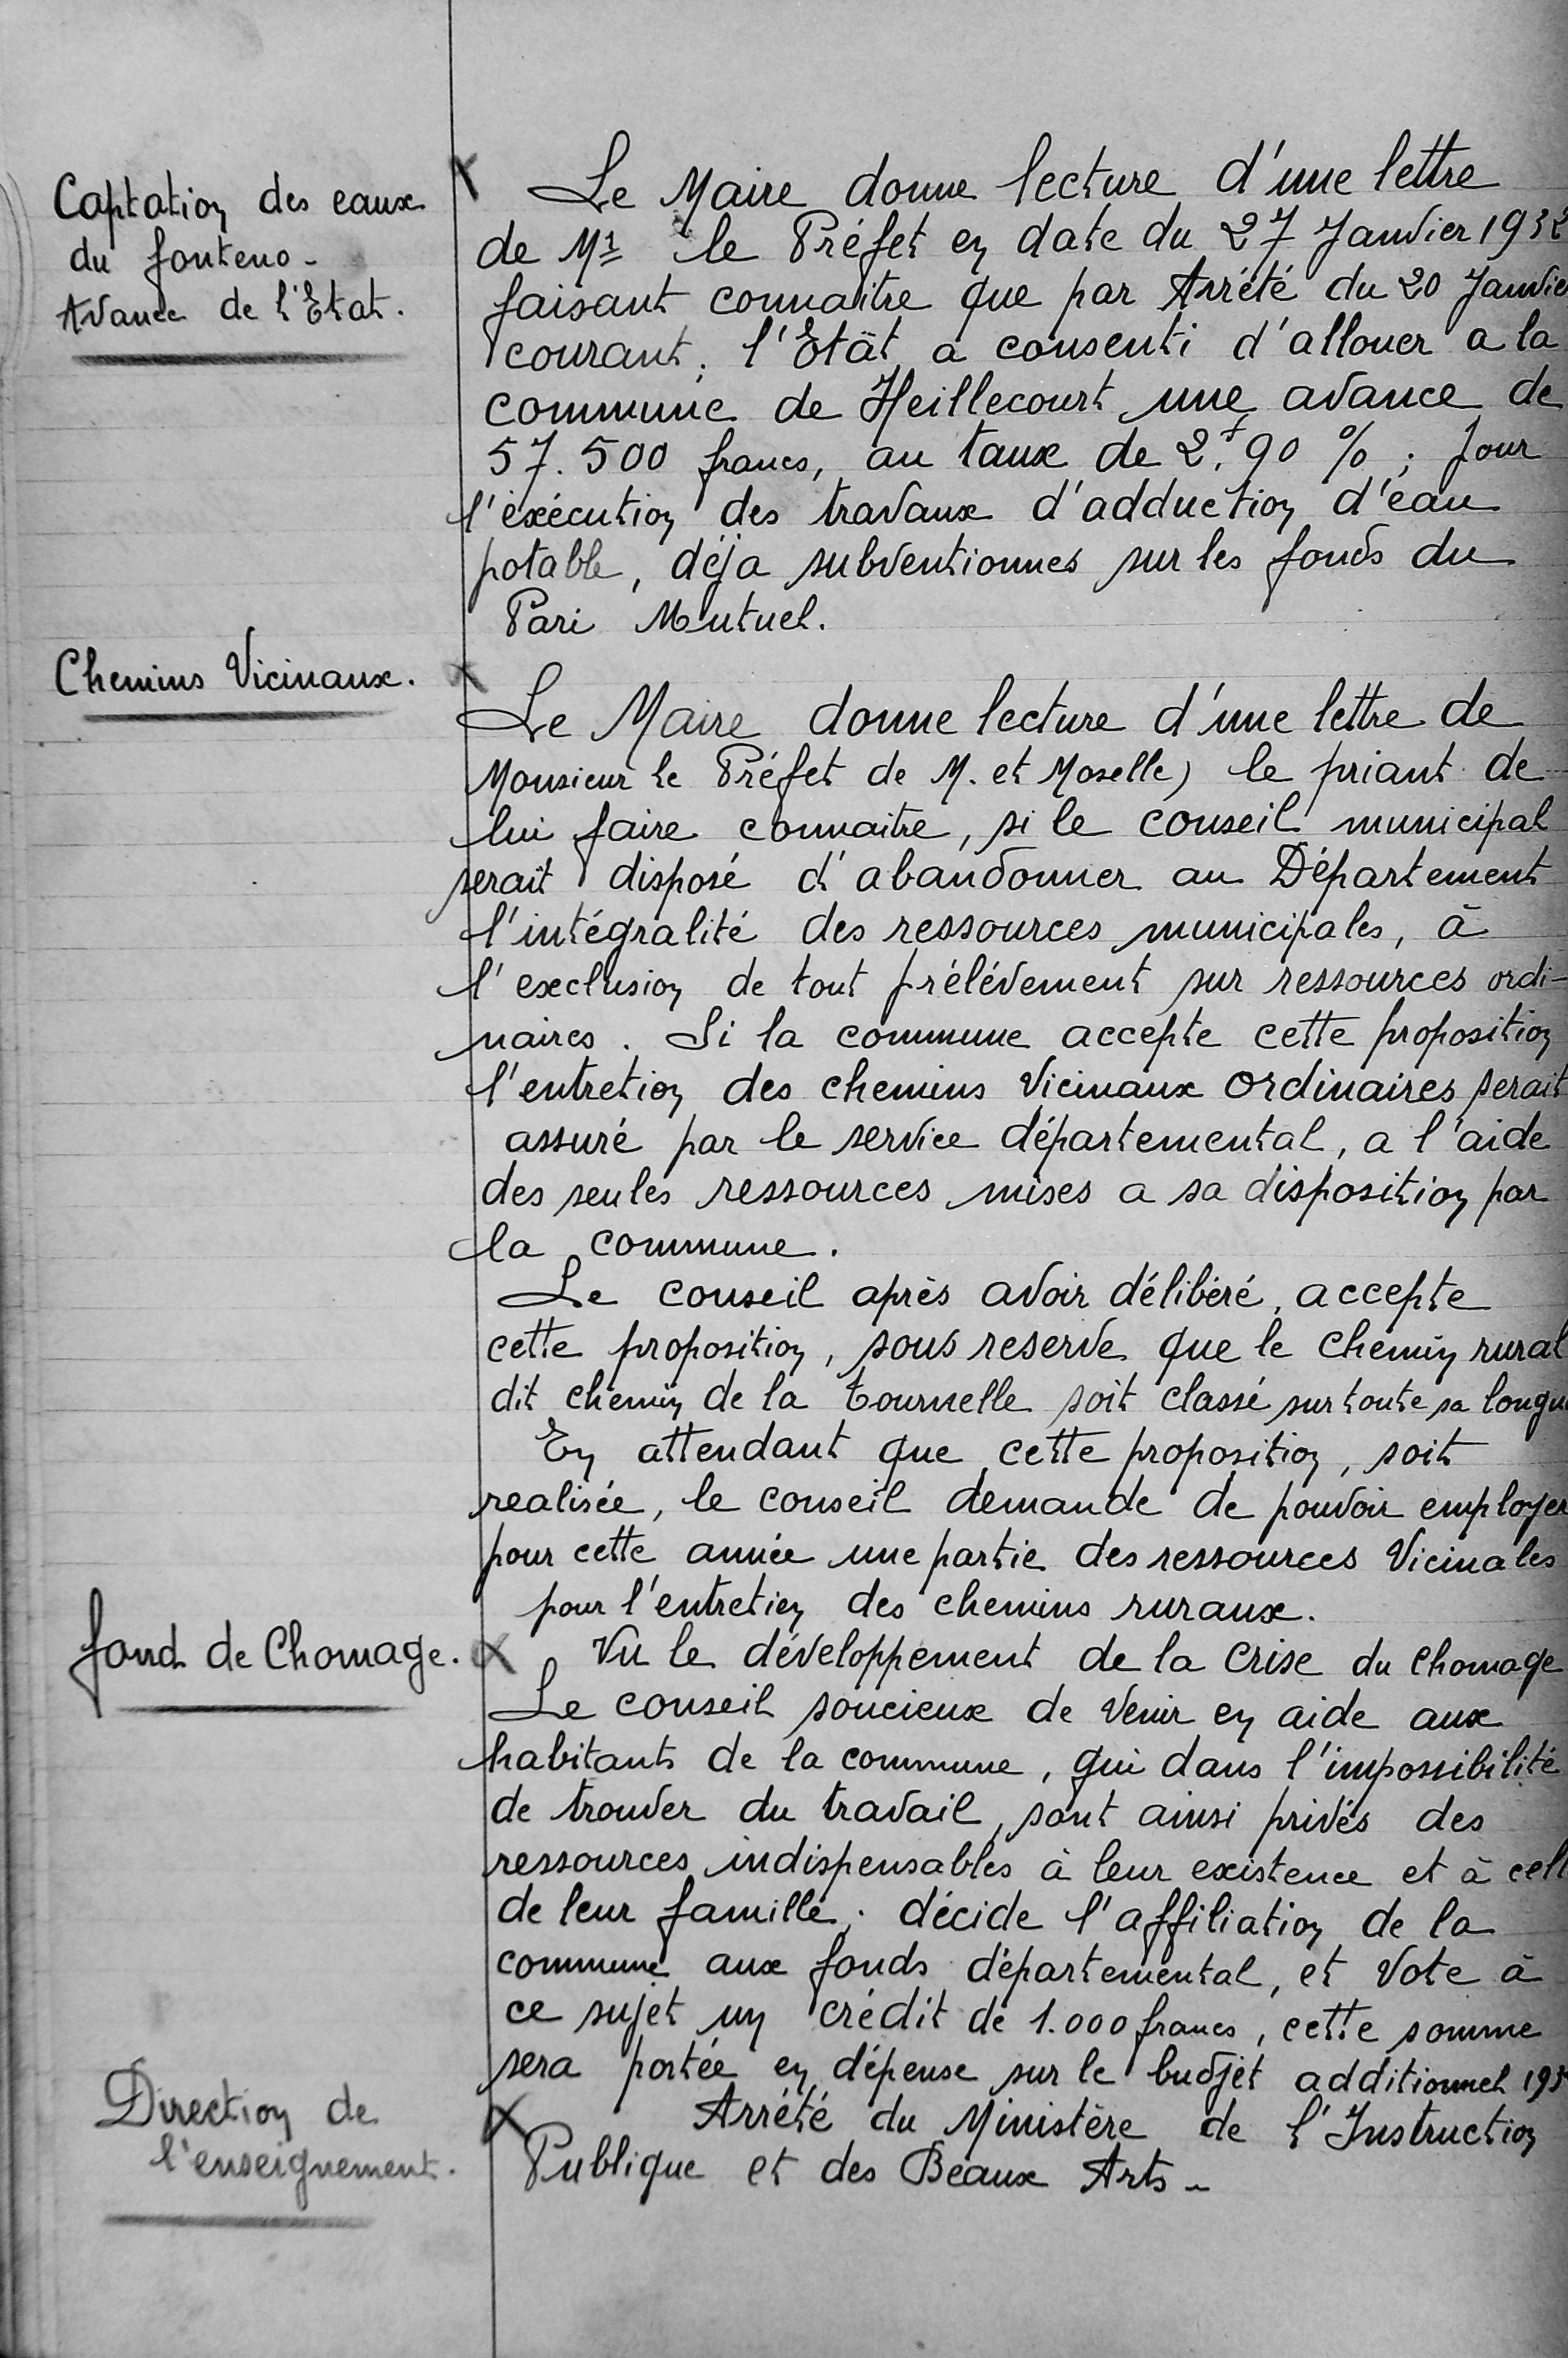 Captation des eaux
du fonteno -
Avance de l'Etat.
Le Maire donne lecture d'une lettre
de Mr le Préfet en date du 27 Janvier 1932
faisant connaitre que par Arrété du 20 Janvie
courant, l'Etat a consenti d'allouer a la
commune de Heillecourt une avance de
57.500 francs, au taux de 2,f 90 % ; pour
l'éxécution des travaux d'adduction d'eau
potable, déja subventionnes sur les fonds du
Pari Mutuel.
Chemins Vicinaux.
Le Maire donne lecture d'une lettre de
Monsieur le Préfet de M. et Moselle) le priant de
lui faire connaitre, si le conseil municipal
serait disposé d'abandonner au Département
l'intégralité des ressources municipales, à
l'exclusion de tout prélévement sur ressources ordi-
naires. Si la commune accepte cette proposition
l'entretien des chemins Vicinaux ordinaires serait
assuré par le service départemental, a l'aide
des seules ressources mises a sa disposition par
la commune.
Le conseil après avoir délibéré, accepte
cette proposition, sous reserve que le chemin rural
dit chemin de la tournelle soit classé sur toute sa longu
En attendant que cette proposition, soit
realisée, le conseil demande de pouvoir employer
pour cette année une partie des ressources Vicinales
pour l'entretien des chemins ruraux.
fond de Chomage.
Vu le développement de la crise du chomage
Le conseil soucieux de Venir en aide aux
habitants de la commune, qui dans l'impossibilité
de trouver du travail, sont ainsi privés des
ressources indispensables à leur existence et à cell
de leur famille; décide l'affiliation de la
commune aux fonds départemental, et Vote à
ce sujet un crédit de 1.000 francs, cette somme
sera portée en dépense sur le budjet additionnel 193
Direction de
l'enseignement.
Arrété du Ministère de l'Instruction
Publique et des Beaux Arts -